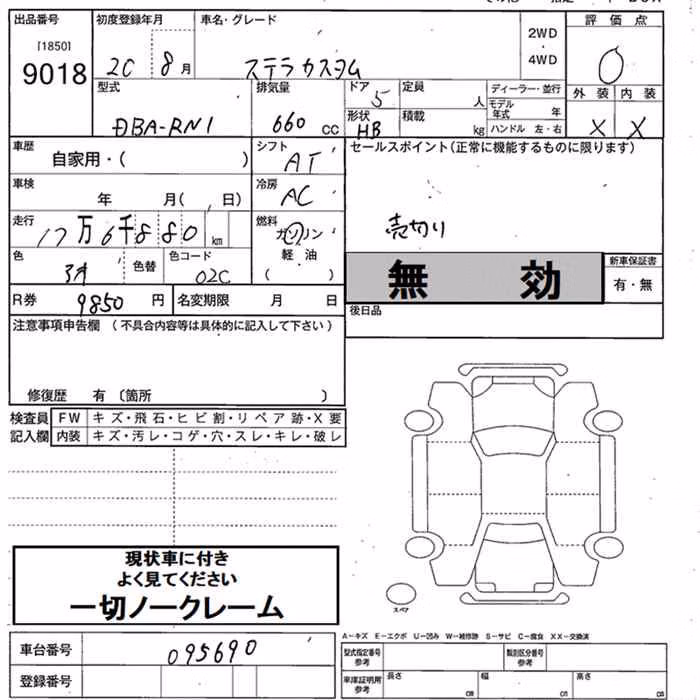 出品番号
[1850]
9018
初度登録年月
20 8月
車名・グレード
ステラカスタム
2WD
・
4WD
評価点
0
外装 内装
X X
型式
DBA-RN1
排気量
660 cc
ドア
5
形状
HB
定員
人
積載
kg
ディーラー・並行
モデル年式 年
ハンドル 左・右
車歴
自家用・( )
シフト
AT
セールスポイント(正常に機能するものに限ります)
売切り
車検
年 月( 、日)
冷房
AC
走行
17万6千880 km
燃料
ガソリン
軽油
( )
色
色替
色コード
02C
無 効
新車保証書
有・無
R券
9850 円
名変期限 月 日
後日品
注意事項申告欄 (不具合内容等は具体的に記入して下さい)
修復歴 有 (箇所 )
検査員記入欄
FW キズ・飛石・ヒビ割・リペア跡・X要
内装 キズ・汚レ・コゲ・穴・スレ・キレ・破レ
現状車に付き
よく見てください
一切ノークレーム
スペア
車台番号
095690
登録番号
A-キズ E-エクボ U-凹み W-補修跡 S-サビ C-腐食 XX-交換済
型式指定番号
参考
類別区分番号
参考
車庫証明用
参考
長さ
cm
幅
cm
高さ
cm